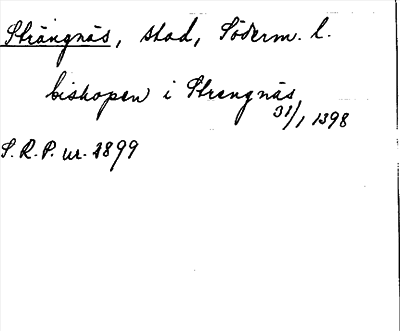 Strängnäs, stad, Söderm. l.
biskopen i Strengnäs
31/1 1398
S.R.P. nr. 2899